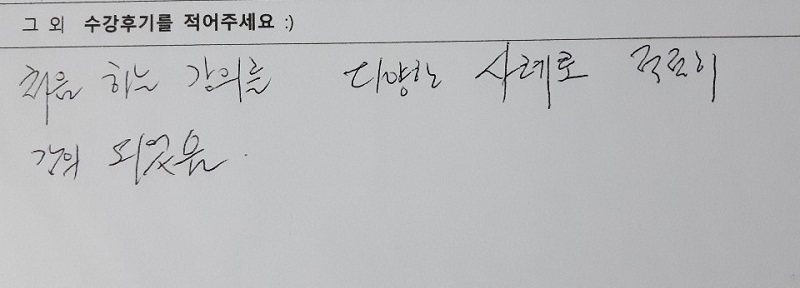 그 외 수강후기를 적어주세요 :)
처음 하는 강의를 다양한 사례로 적절히
강의 되었음.